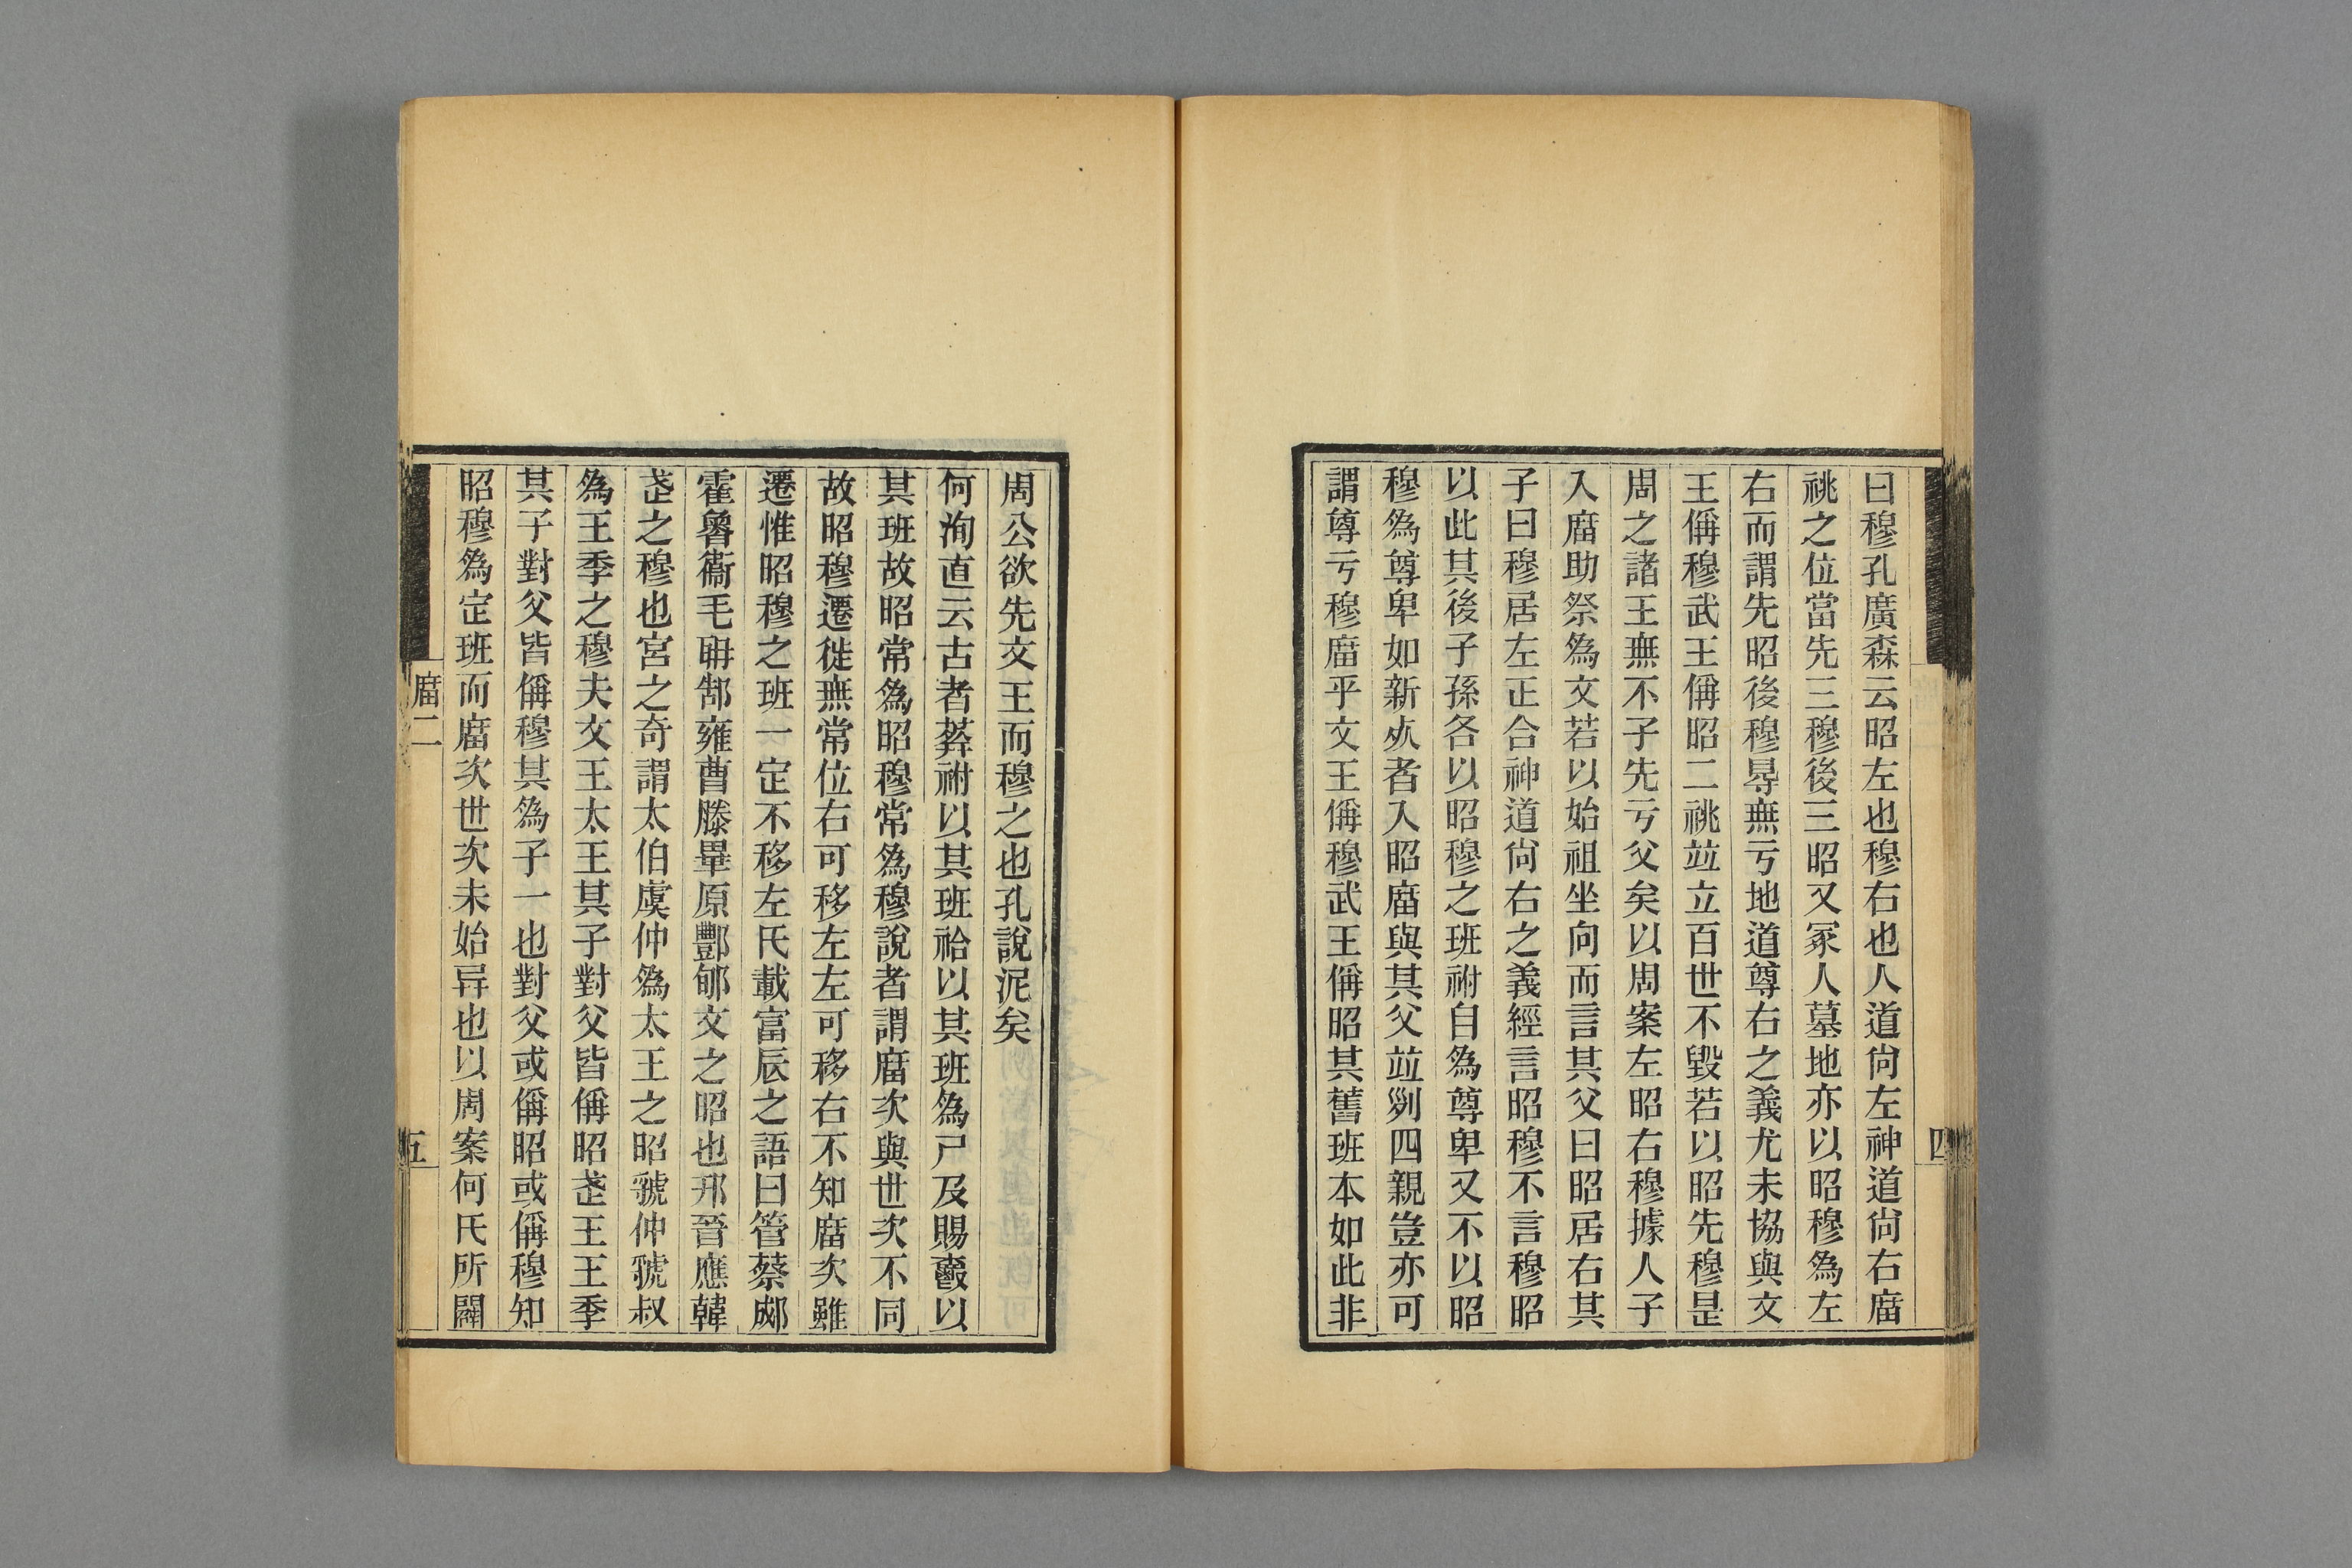 四
曰穆孔廣森云昭左也穆右也人道尙左神道尙右庿
祧之位當先三穆後三昭又冢人墓地亦以昭穆爲左
右而謂先昭後穆㝵無亏地道尊右之義尤未協與文
王偁穆武王偁昭二祧竝立百世不毀若以昭先穆是
周之諸王無不子先亏父矣以周案左昭右穆據人子
入庿助祭爲文若以始祖坐向而言其父曰昭居右其
子曰穆居左正合神道尙右之義經言昭穆不言穆昭
以此其後子孫各以昭穆之班祔自爲尊卑又不以昭
穆爲尊卑如新㱙者入昭庿與其父竝列四親豈亦可
謂尊亏穆庿乎文王偁穆武王偁昭其舊班本如此非
周公欲先文王而穆之也孔說泥矣
何洵直云古者葬祔以其班祫以其班爲尸及賜爵以
其班故昭常爲昭穆常爲穆說者謂庿次與世次不同
故昭穆遷徙無常位右可移左左可移右不知庿次雖
遷惟昭穆之班一定不移左氏載富辰之語曰管蔡郕
霍魯衞毛𦕈郜雍曹滕畢原酆郇文之昭也邘晉應韓
武之穆也宮之奇謂太伯虞仲爲太王之昭虢仲虢叔
爲王季之穆夫文王太王其子對父皆偁昭武王王季
其子對父皆偁穆其爲子一也對父或偁昭或偁穆知
昭穆爲定班而庿次世次未始异也以周案何氏所闢
庿二
五